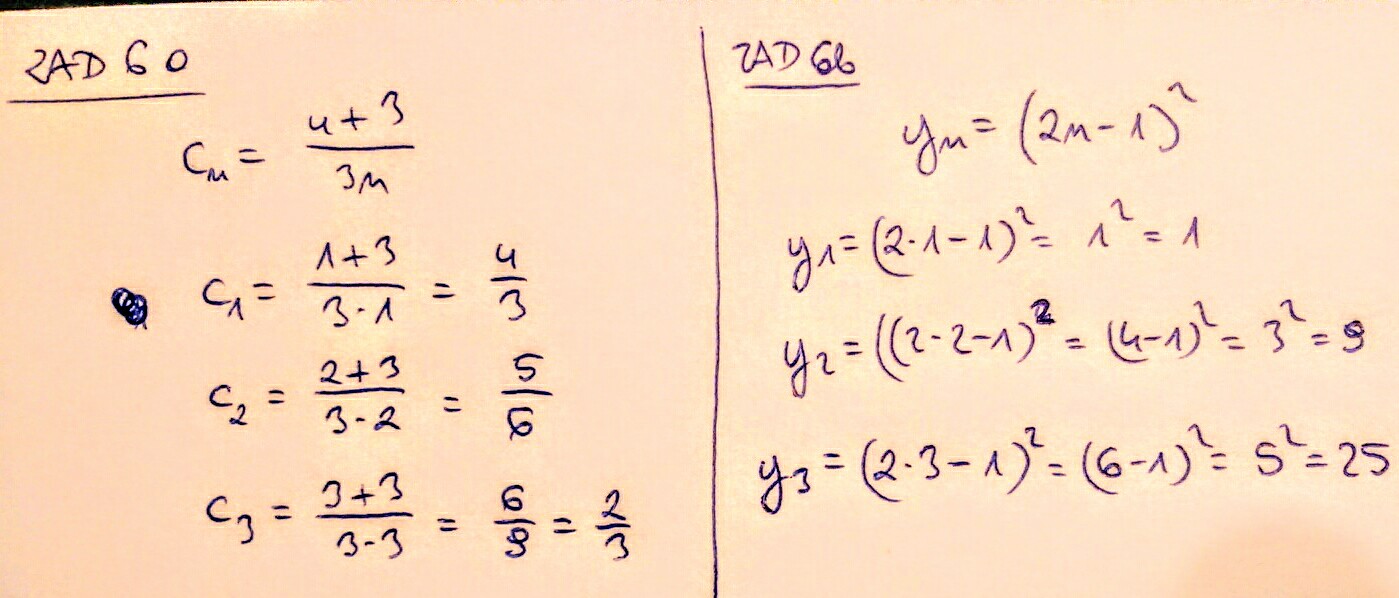 ZAD 60
cₙ = (n+3)/(3n)
c₁ = (1+3)/(3·1) = 4/3
c₂ = (2+3)/(3·2) = 5/6
c₃ = (3+3)/(3·3) = 6/9 = 2/3
ZAD 6b
yₙ = (2n-1)²
y₁ = (2·1-1)² = 1² = 1
y₂ = ((2·2-1)² = (4-1)² = 3² = 9
y₃ = (2·3-1)² = (6-1)² = 5² = 25